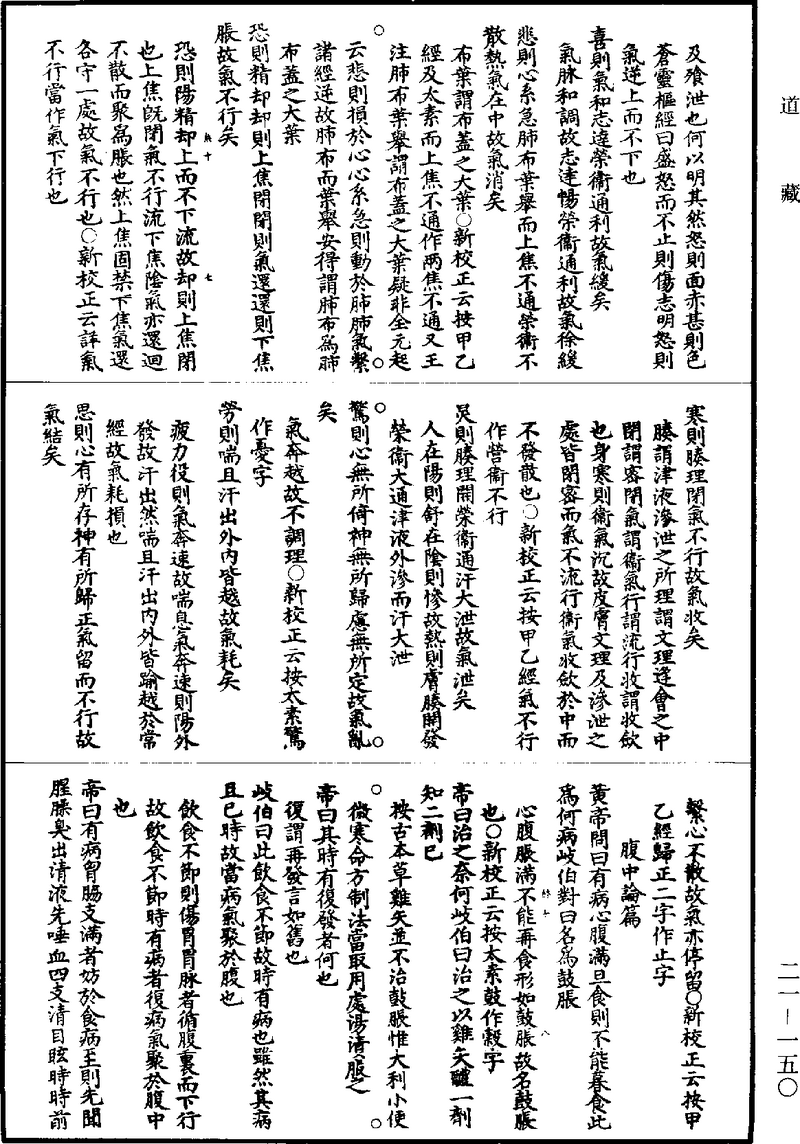 道藏
二一－一五〇
及飱泄也何以明其然怒則面赤甚則色
蒼靈樞經曰盛怒而不止則傷志明怒則
氣逆上而不下也
喜則氣和志達榮衛通利故氣緩矣
氣脉和調故志達暢榮衛通利故氣徐緩
悲則心系急肺布葉舉而上焦不通榮衛不
散熱氣在中故氣消矣
布葉謂布蓋之大葉○新校正云按甲乙
經及太素而上焦不通作兩焦不通又王
注肺布葉舉謂布蓋之大葉疑非全元起
云悲則損於心心系急則動於肺肺氣繫
諸經逆故肺布而葉舉安得謂肺布爲肺
布蓋之大葉
恐則精却却則上焦閉閉則氣還還則下焦
脹故氣不行矣
恐則陽精却上而不下流故却則上焦閉
也上焦旣閉氣不行流下焦陰氣亦還迴
不散而聚爲脹也然上焦固禁下焦氣還
各守一處故氣不行也○新校正云詳氣
不行當作氣下行也
寒則腠理閉氣不行故氣收矣
腠謂津液滲泄之所理謂文理逢會之中
閉謂密閉氣謂衛氣行謂流行收謂收斂
也身寒則衛氣沉故皮膚文理及滲泄之
處皆閉密而氣不流行衛氣收斂於中而
不發散也○新校正云按甲乙經氣不行
作營衛不行
炅則腠理開榮衛通汗大泄故氣泄矣
人在陽則舒在陰則慘故熱則膚腠開發
榮衛大通津液外滲而汗大泄
驚則心無所倚神無所歸慮無所定故氣亂
矣
氣奔越故不調理○新校正云按太素驚
作憂字
勞則喘且汗出外内皆越故氣耗矣
疲力役則氣奔速故喘息氣奔速則陽外
發故汗出然喘且汗出内外皆踰越於常
經故氣耗損也
思則心有所存神有所歸正氣留而不行故
氣結矣
繫心不散故氣亦停留○新校正云按甲
乙經歸正二字作止字
腹中論篇
黄帝問曰有病心腹滿旦食則不能暮食此
爲何病岐伯對曰名爲鼓脹
心腹脹滿不能再食形如鼓脹故名鼓脹
也○新校正云按太素鼓作穀字
帝曰治之奈何岐伯曰治之以雞矢醴一劑
知二劑已
按古本草雞矢並不治鼓脹惟大利小便
微寒今方制法當取用處湯漬服之
帝曰其時有復發者何也
復謂再發言如舊也
岐伯曰此飲食不節故時有病也雖然其病
且已時故當病氣聚於腹也
飲食不節則傷胃胃脉者循腹裏而下行
故飲食不節時有病者復病氣聚於腹中
也
帝曰有病胷脇支滿者妨於食病至則先聞
腥臊臭出清液先唾血四支清目眩時時前